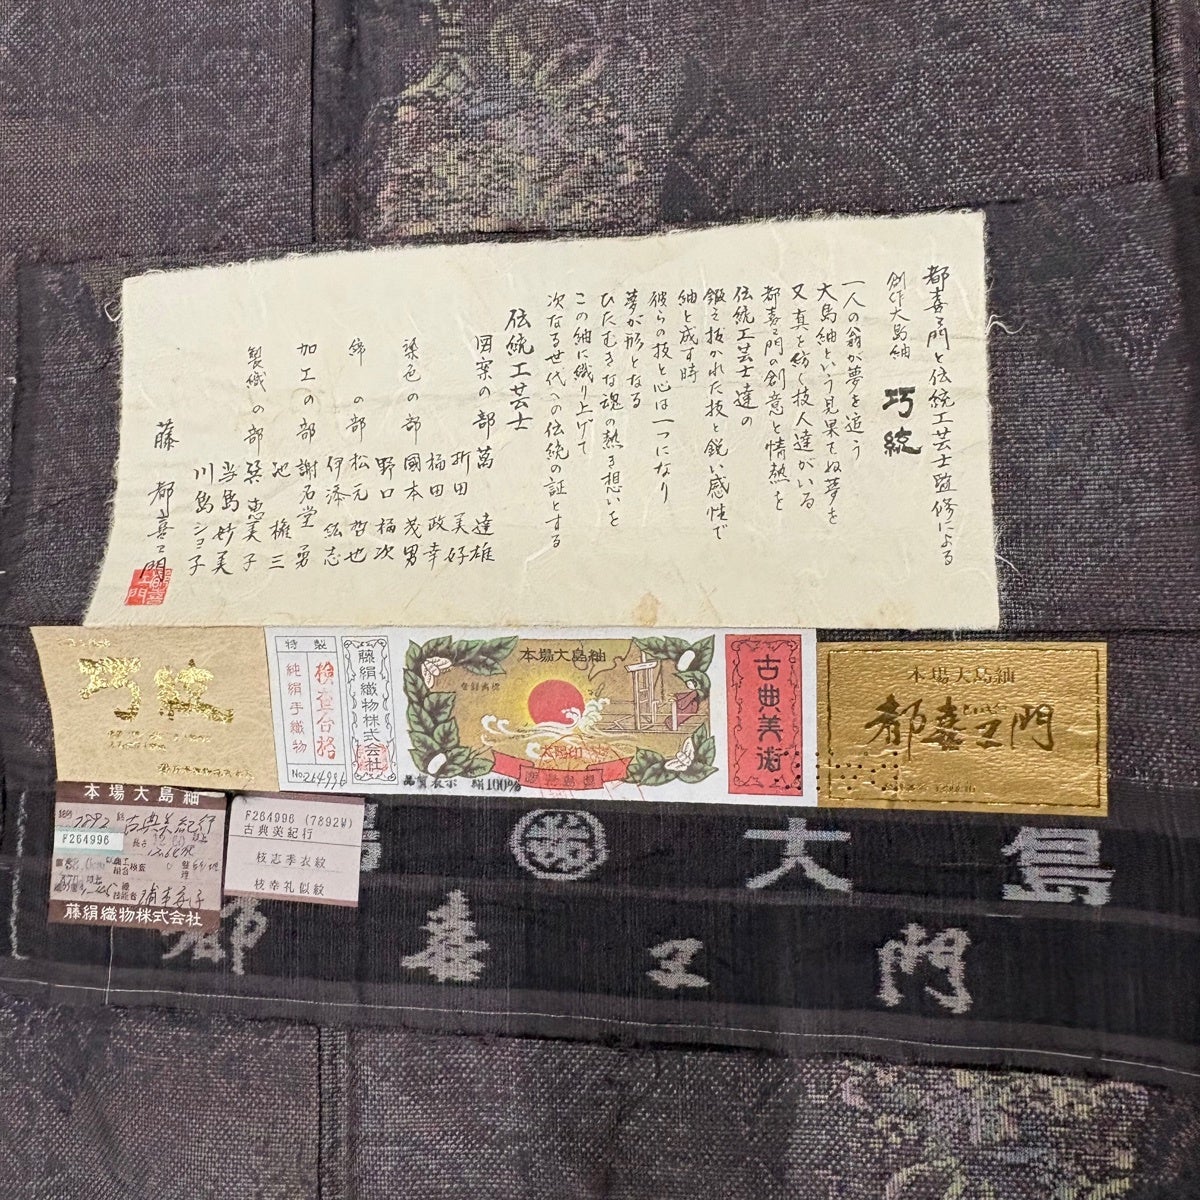 都喜ヱ門と伝統工芸士監修による
創作大島紬 巧統
一人の翁が夢を追う
大島紬という見果てぬ夢を
又真を紡ぐ技人達がいる
都喜ヱ門の創意と情熱を
伝統工芸士達の
鍛え抜かれた技と鋭い感性で
紬と成す時
彼らの技と心は一つになり
夢が形となる
ひたむきな魂の熱き想いを
この紬に織り上げて
次なる世代への伝統の証とする
伝統工芸士
図案の部 萬 達雄
折田 美好
福田 政幸
染色の部 國本 茂男
野口 福次
締の部 松元 哲也
伊添 紘志
加工の部 謝石堂 勇
池 権三
製織の部 巽 恵美子
当島 妙美
川島 ショ子
藤 都喜ヱ門
巧統
特製
検査合格
純絹手織物
No.264996
藤絹織物株式会社
本場大島紬
登録商標
太陽印
品質表示 絹100%
古典美術
本場大島紬
都喜ヱ門
本場大島紬
7892
F264996
藤絹織物株式会社
F264996 (7892W)
古典美紀行
枝志季衣紋
枝幸礼似紋
大島
都喜ヱ門